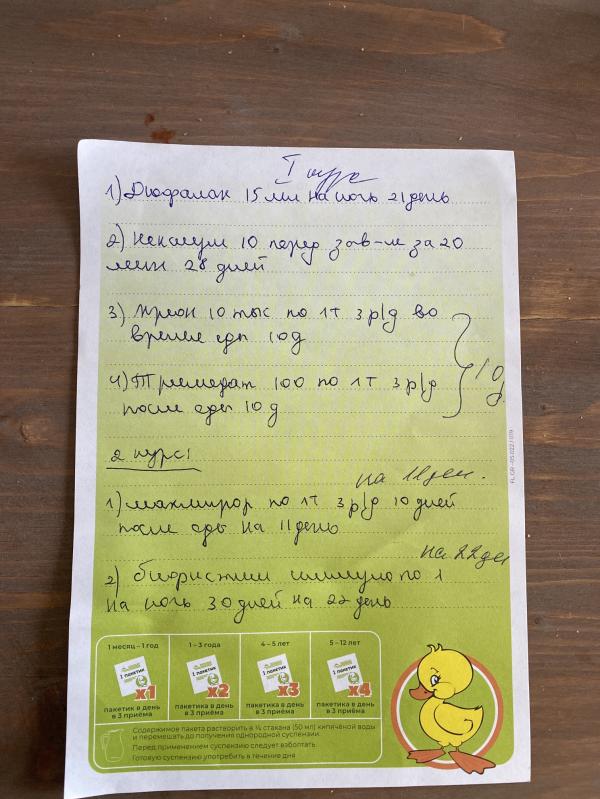 I курс
1) Дюфалак 15 мл на ночь 21 день
2) Нексиум 10 перед зав-м за 20
мин 28 дней
3) Креон 10 тыс по 1т 3 р/д во
время еды 10д
4) Тримедат 100 по 1т 3 р/д
после еды 10 д
10д
2 курс:
на 11 ден.
1) Макмирор по 1т 3 р/д 10 дней
после еды на 11 день
на 22 де
2) биористин иммуно по 1
на ночь 30 дней на 22 день
1 месяц – 1 год
1 пакетик
x1
пакетика в день
в 3 приёма
1 – 3 года
1 пакетик
x2
пакетика в день
в 3 приёма
4 – 5 лет
1 пакетик
x3
пакетика в день
в 3 приёма
5 – 12 лет
1 пакетик
x4
пакетика в день
в 3 приёма
Содержимое пакета растворить в ¼ стакана (50 мл) кипячёной воды
и перемешать до получения однородной суспензии.
Перед применением суспензию следует взболтать
Готовую суспензию употребить в течение дня